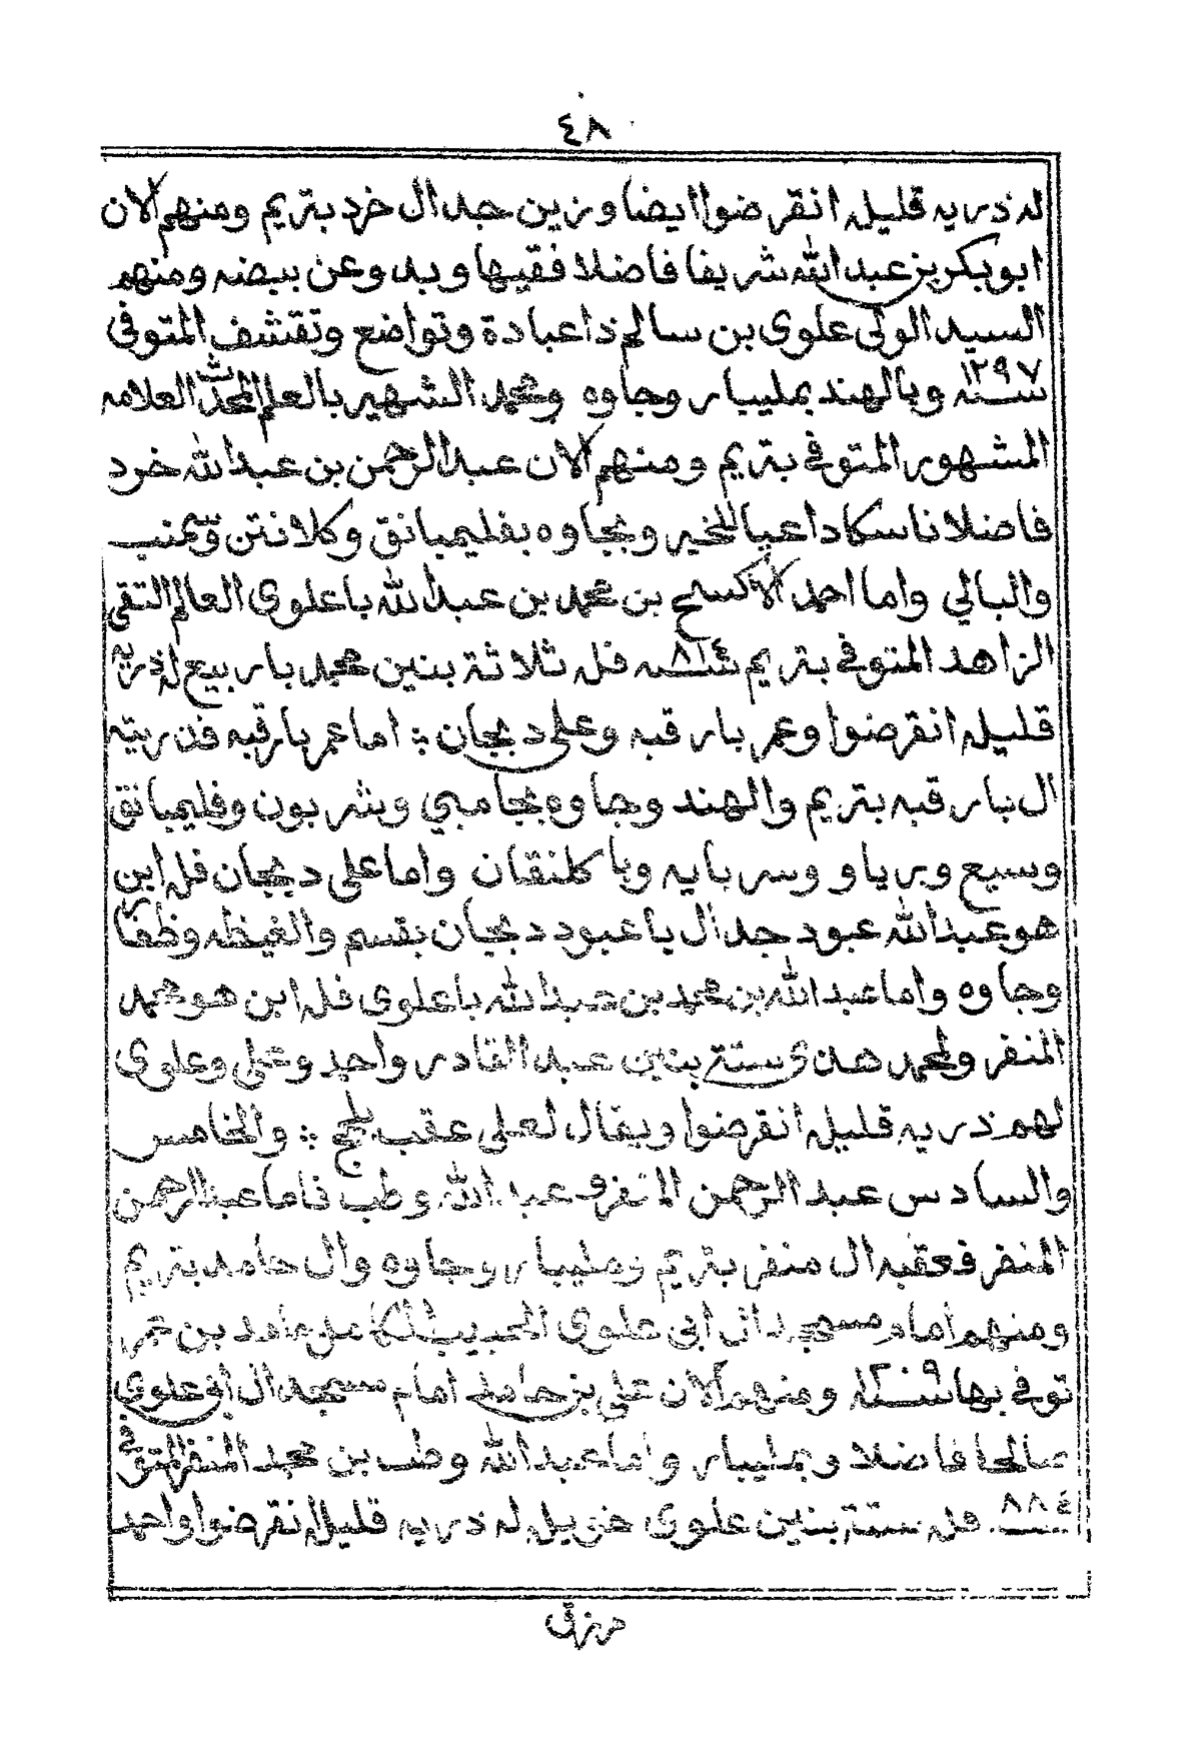 ٤٨
له ذريه قليله انقرضوا ايضا وزين جد ال خرد بتريم ومنهم الان
ابوبكر بن عبد الله شريفا فاضلا فقيها وبدوعن ببيضه ومنهم
السيد الولى علوى بن سالم ذا عبادة وتواضع وتقشف المتوفى
سنة ١٢٩٧ وبالهند بمليبار وجاوه ومحمد الشهير بالعلم المحدث العلامه
المشهور المتوفى بتريم ومنهم الان عبد الرحمن بن عبد الله خرد
فاضلا ناسكا داعيا للخير وبجاوه بفليمبانق وكلانتن وتمنب
والبالي واما احمد الاكسح بن محمد بن عبد الله باعلوى العالم التقى
الزاهد المتوفى بتريم سنه ٨١٤ فله ثلاثة بنين محمد باربيع له ذريه
قليله انقرضوا وعمر بارقبه وعلى دبجان : اما عمر بارقبه فذريته
ال بارقبه بتريم والهند وجاوه بجامبي وشربون وفليمبانق
وسيع وبرياو وسربايه وبا كلنقان واما على دبجان فله ابن
هو عبد الله عبود جد ال باعبود دبجان بقسم والغيظه وظفار
وجاوه واما عبد الله بن محمد بن عبد الله باعلوى فله ابن هو محمد
المنفر ولمحمد هذى ستة بنين عبد القادر واحمد وعلى وعلوى
لهم ذريه قليله انقرضوا ويقال لعلى عقب بلحج : والخامس
والسادس عبد الرحمن المنفر وعبد الله وطب فاما عبد الرحمن
المنفر فعقبه ال منفر بتريم ومليبار وجاوه وال حامد بتريم
ومنهم امام مسجد ال ابى علوى الحبيب الكامل حامد بن عمر
توفى بها سنة ١٢٠٩ ومنهم الان على بن حامد امام مسجد ال ابى علوى
صالحا فاضلا وبمليبار واما عبد الله وطب بن محمد المنفر المتوفى
٨٨٤ فله ستة بنين علوى خزيل له ذريه قليله انقرضوا واحمد